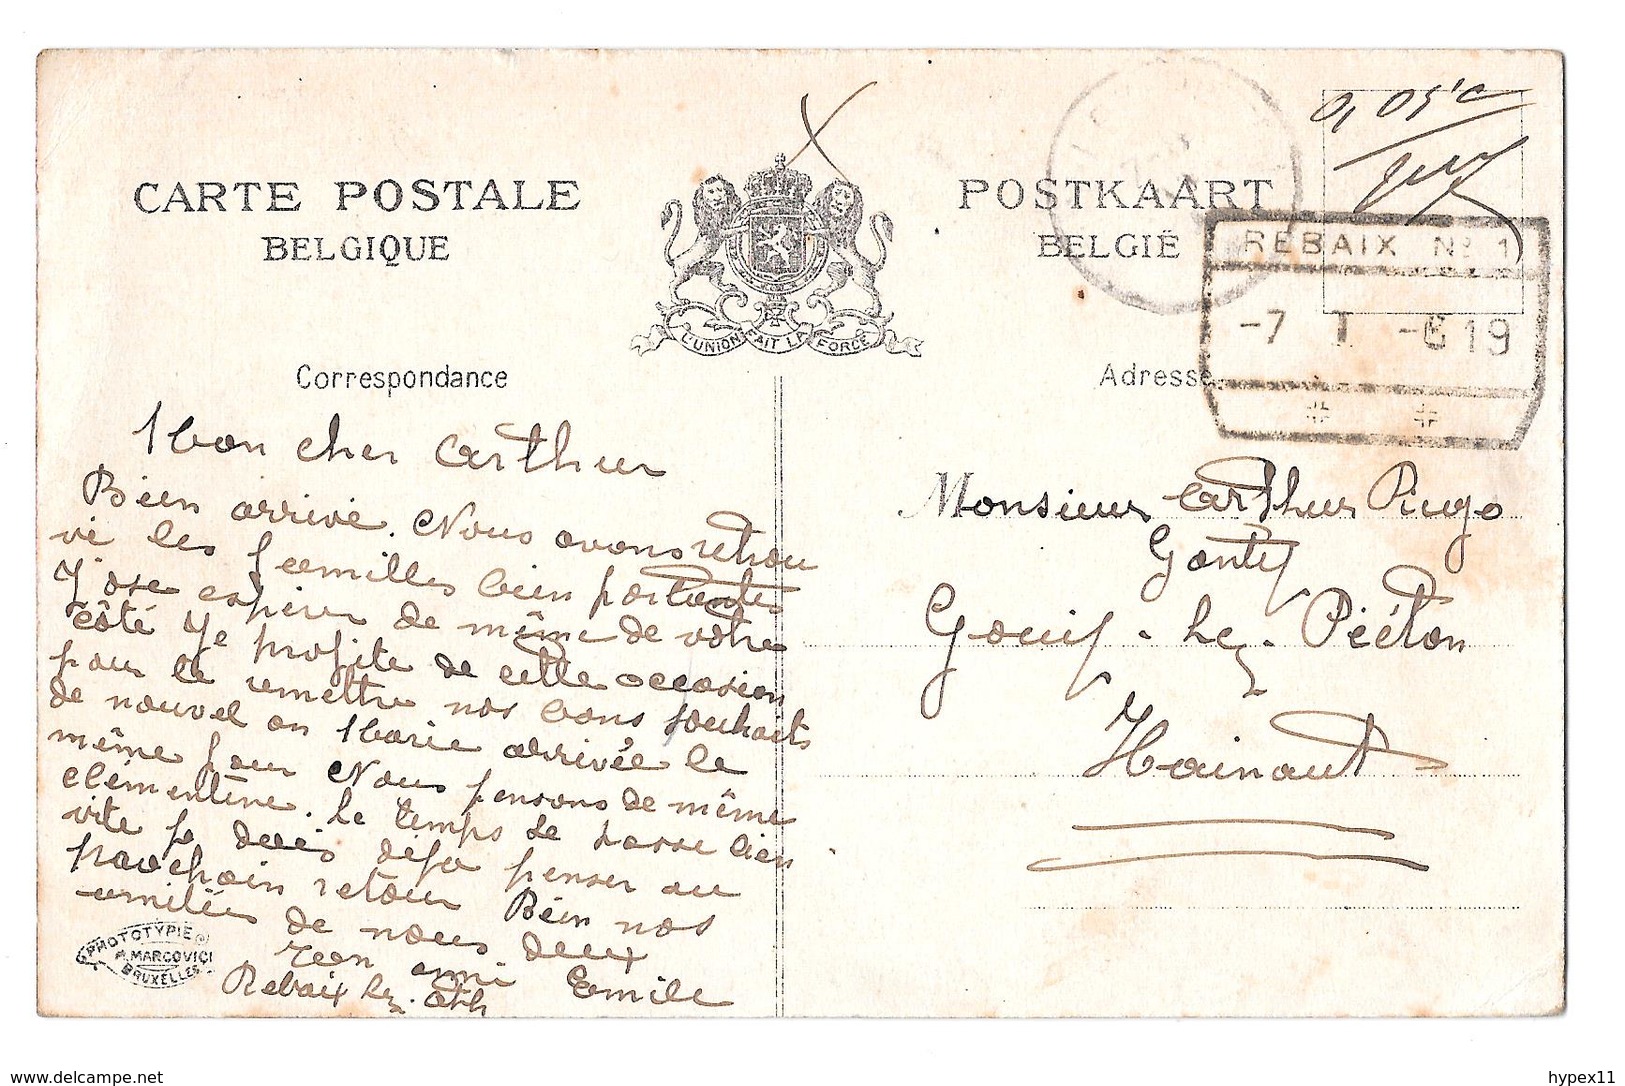 CARTE POSTALE
BELGIQUE
POSTKAART
BELGIË
L'UNION FAIT LA FORCE
0,05c
REBAIX Nº 1
-7 I -6 19
Correspondance
Adresse
Mon cher Arthur
Bien arrivé. Nous avons retrou
vé les familles bien portantes
J'ose espérer de même de votre
côté Je profite de cette occasion
pour te remettre nos bons souhaits
de nouvel an Marie arrivée le
même jour Nous pensons de même
Clémentine. Le temps se passe bien
vite je dois déjà penser au
prochain retour Bien nos
amitiés de nous deux
ton ami Emile
Rebaix lez Ath
Monsieur Arthur Pingo
Gouy-lez-Piéton
Hainaut
PHOTOTYPIE
A. MARCOVICI
BRUXELLES
www.delcampe.net
hypex11